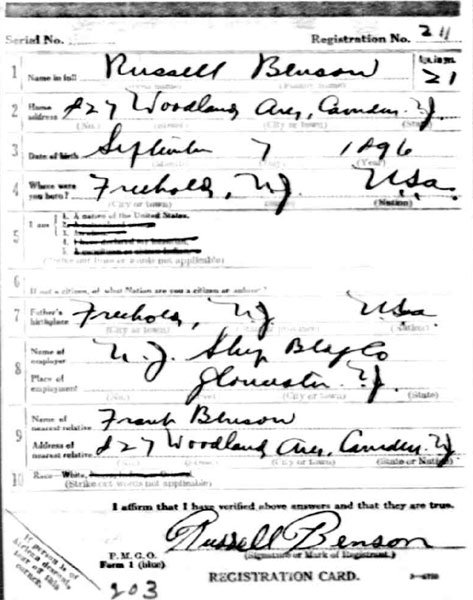 Serial No. Registration No. 211
1 Name in full Russell Benson Age, in yrs. 21
2 Home address 827 Woodland Ave, Camden N.J.
(No.) (City or town) (State)
3 Date of birth September 7 1896
(Year)
4 Where were you born? Freehold, N.J. U.S.a.
(City or town) (Nation)
5 I am 1. A native of the United States.
2. A naturalized
3. An alien
4. I have declared my intention
5.
(Strike out lines or words not applicable)
6 If not a citizen, of what Nation are you a citizen or subject?
7 Father's birthplace Freehold, N.J. U.S.a.
(City or town) (Nation)
8 Name of employer N.J. Ship Bldg Co
Place of employment Gloucester N.J.
(No.) (City or town) (State)
9 Name of nearest relative Frank Benson
Address of nearest relative 827 Woodland Ave, Camden N.J.
(No.) (City or town) (State or Nation)
10 Race—White,
(Strike out words not applicable)
I affirm that I have verified above answers and that they are true.
Russell Benson
(Signature or Mark of Registrant.)
P.M.G.O.
Form 1 (blue)
REGISTRATION CARD.
203
If person is of African descent tear off this corner.